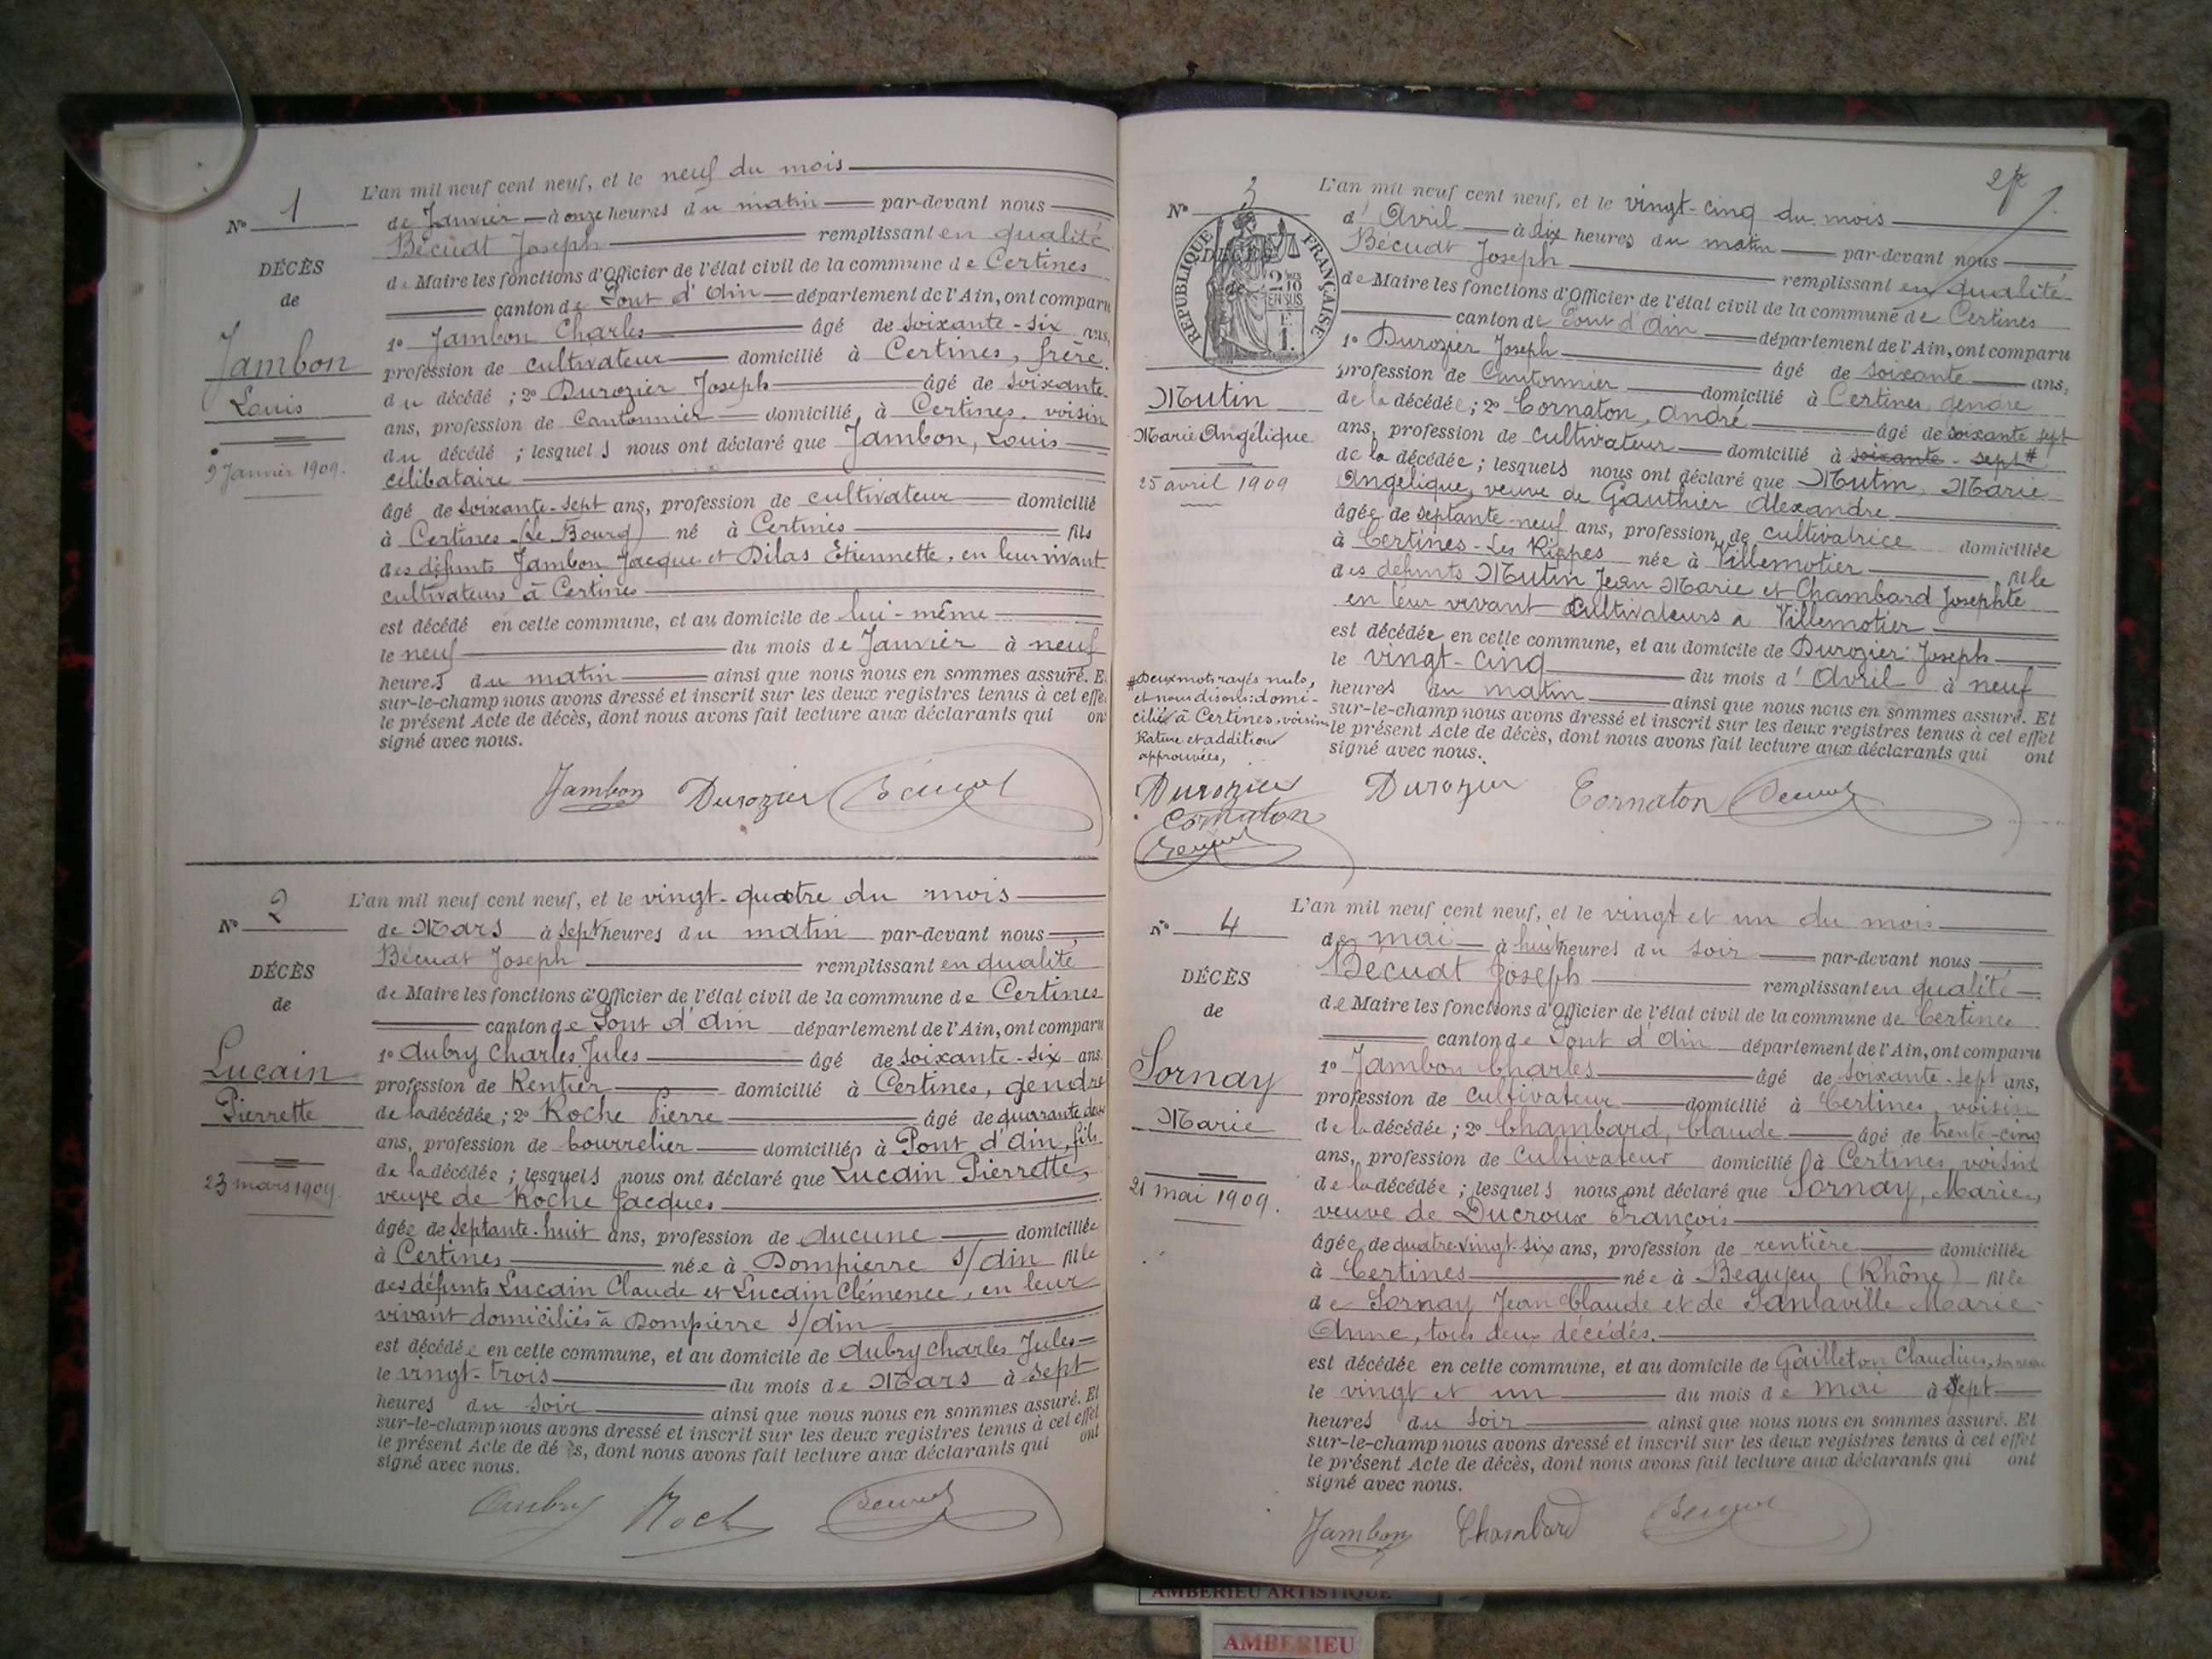 L'an mil neuf cent neuf, et le neuf du mois
N° 1
de Janvier à onze heures du matin par-devant nous
Bécudt Joseph remplissant en qualité
DÉCÈS
de Maire les fonctions d'Officier de l'état civil de la commune de Certines
de
canton de Pont d'Ain département de l'Ain, ont comparu
1° Jambon Charles âgé de soixante-six ans,
Jambon
profession de cultivateur domicilié à Certines, frère
Louis
du décédé ; 2° Durozier Joseph âgé de soixante
ans, profession de Cantonnier domicilié à Certines, voisin
du décédé ; lesquels nous ont déclaré que Jambon, Louis
9 Janvier 1909.
célibataire
âgé de soixante-sept ans, profession de cultivateur domicilié
à Certines (Le Bourg) né à Certines fils
des défunts Jambon Jacque et Dilas Etiennette, en leur vivant
cultivateurs à Certines
est décédé en cette commune, et au domicile de lui-même
le neuf du mois de Janvier à neuf
heures du matin ainsi que nous nous en sommes assuré. E
sur-le-champ nous avons dressé et inscrit sur les deux registres tenus à cet effe
le présent Acte de décès, dont nous avons fait lecture aux déclarants qui on
signé avec nous.
Jambon Durozier Bécudt
L'an mil neuf cent neuf, et le vingt-quatre du mois
N° 2
de Mars à sept heures du matin par-devant nous
Bécudt Joseph remplissant en qualité
DÉCÈS
de Maire les fonctions d'Officier de l'état civil de la commune de Certines
de
canton de Pont d'Ain département de l'Ain, ont comparu
1° Aubry Charles Jules âgé de soixante-six ans
Lucain
profession de Rentier domicilié à Certines, gendre
Pierrette
de la décédée ; 2° Roche Pierre âgé de quarante deux
ans, profession de bourrelier domiciliés à Pont d'Ain, fils
de la décédée ; lesquels nous ont déclaré que Lucain Pierrette,
23 mars 1909.
veuve de Roche Jacques
âgée de septante-huit ans, profession de aucune domiciliée
à Certines née à Dompierre s/Ain fille
des défunts Lucain Claude et Lucain Clémence, en leur
vivant domiciliés à Dompierre s/Ain
est décédée en cette commune, et au domicile de Aubry Charles Jules
le vingt-trois du mois de Mars à sept
heures du soir ainsi que nous nous en sommes assuré. Et
sur-le-champ nous avons dressé et inscrit sur les deux registres tenus à cet effet
le présent Acte de dé ès, dont nous avons fait lecture aux déclarants qui ont
signé avec nous.
Aubry Roch Bécudt
L'an mil neuf cent neuf, et le vingt-cinq du mois
N° 3
d'Avril à dix heures du matin par-devant nous
Bécudt Joseph remplissant en qualité
RÉPUBLIQUE FRANÇAISE
DÉCÈS
de
2/10 EN SUS
1.
de Maire les fonctions d'Officier de l'état civil de la commune de Certines
canton de Pont d'Ain département de l'Ain, ont comparu
1° Durozier Joseph âgé de soixante ans,
profession de Cantonnier domicilié à Certines, gendre
Mutin
de la décédée ; 2° Cornaton, André âgé de soixante sept
Marie Angélique
ans, profession de cultivateur domicilié à soixante-sept #
de la décédée ; lesquels nous ont déclaré que Mutin, Marie
25 avril 1909
Angélique, veuve de Gauthier Alexandre
âgée de septante-neuf ans, profession de cultivatrice domiciliée
à Certines-Les Rippes née à Villemotier fille
des défunts Mutin Jean Marie et Chambard Josephte
en leur vivant cultivateurs à Villemotier
est décédée en cette commune, et au domicile de Durozier Joseph
le vingt-cinq du mois d'Avril à neuf
heures du matin ainsi que nous nous en sommes assuré. Et
sur-le-champ nous avons dressé et inscrit sur les deux registres tenus à cet effet
le présent Acte de décès, dont nous avons fait lecture aux déclarants qui ont
signé avec nous.
# Deux mots rayés nuls,
et nous disons: domi-
cilié à Certines, voisin
Rature et addition
approuvées,
Durozier
Cornaton
Bécudt
Durozier Cornaton Bécudt
L'an mil neuf cent neuf, et le vingt et un du mois
N° 4
de mai à huit heures du soir par-devant nous
Bécudt Joseph remplissant en qualité
DÉCÈS
de Maire les fonctions d'Officier de l'état civil de la commune de Certines
de
canton de Pont d'Ain département de l'Ain, ont comparu
1° Jambon Charles âgé de soixante-sept ans,
Sornay
profession de cultivateur domicilié à Certines, voisin
Marie
de la décédée ; 2° Chambard, Claude âgé de trente-cinq
ans, profession de Cultivateur domicilié à Certines, voisin
de la décédée ; lesquels nous ont déclaré que Sornay, Marie,
21 mai 1909.
veuve de Ducroux François
âgée de quatre vingt-six ans, profession de rentière domiciliée
à Certines née à Beaujeu (Rhône) fille
de Sornay Jean Claude et de Sanlaville Marie
Anne, tous deux décédés.
est décédée en cette commune, et au domicile de Gailleton Claudius,
le vingt et un du mois de mai à sept
heures du soir ainsi que nous nous en sommes assuré. Et
sur-le-champ nous avons dressé et inscrit sur les deux registres tenus à cet effet
le présent Acte de décès, dont nous avons fait lecture aux déclarants qui ont
signé avec nous.
Jambon Chambard Bécudt
AMBERIEU ARTISTIQUE
AMBERIEU